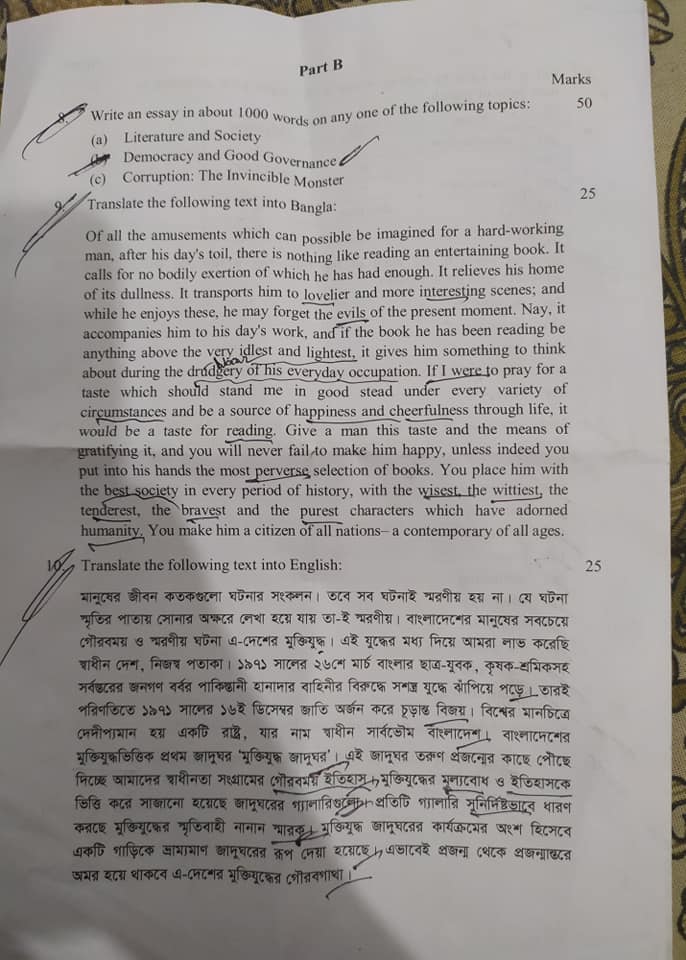 Part B
Marks
8. Write an essay in about 1000 words on any one of the following topics: 50
(a) Literature and Society
(b) Democracy and Good Governance
(c) Corruption: The Invincible Monster
9. Translate the following text into Bangla: 25
Of all the amusements which can possible be imagined for a hard-working
man, after his day's toil, there is nothing like reading an entertaining book. It
calls for no bodily exertion of which he has had enough. It relieves his home
of its dullness. It transports him to lovelier and more interesting scenes; and
while he enjoys these, he may forget the evils of the present moment. Nay, it
accompanies him to his day's work, and if the book he has been reading be
anything above the very idlest and lightest, it gives him something to think
about during the drudgery of his everyday occupation. If I were to pray for a
taste which should stand me in good stead under every variety of
circumstances and be a source of happiness and cheerfulness through life, it
would be a taste for reading. Give a man this taste and the means of
gratifying it, and you will never fail to make him happy, unless indeed you
put into his hands the most perverse selection of books. You place him with
the best society in every period of history, with the wisest, the wittiest, the
tenderest, the bravest and the purest characters which have adorned
humanity. You make him a citizen of all nations– a contemporary of all ages.
10. Translate the following text into English: 25
মানুষের জীবন কতকগুলো ঘটনার সংকলন। তবে সব ঘটনাই স্মরণীয় হয় না। যে ঘটনা
স্মৃতির পাতায় সোনার অক্ষরে লেখা হয়ে যায় তা-ই স্মরণীয়। বাংলাদেশের মানুষের সবচেয়ে
গৌরবময় ও স্মরণীয় ঘটনা এ-দেশের মুক্তিযুদ্ধ। এই যুদ্ধের মধ্য দিয়ে আমরা লাভ করেছি
স্বাধীন দেশ, নিজস্ব পতাকা। ১৯৭১ সালের ২৬শে মার্চ বাংলার ছাত্র-যুবক, কৃষক-শ্রমিকসহ
সর্বস্তরের জনগণ বর্বর পাকিস্তানী হানাদার বাহিনীর বিরুদ্ধে সশস্ত্র যুদ্ধে ঝাঁপিয়ে পড়ে। তারই
পরিণতিতে ১৯৭১ সালের ১৬ই ডিসেম্বর জাতি অর্জন করে চূড়ান্ত বিজয়। বিশ্বের মানচিত্রে
দেদীপ্যমান হয় একটি রাষ্ট্র, যার নাম স্বাধীন সার্বভৌম বাংলাদেশ। বাংলাদেশের
মুক্তিযুদ্ধভিত্তিক প্রথম জাদুঘর 'মুক্তিযুদ্ধ জাদুঘর'। এই জাদুঘর তরুণ প্রজন্মের কাছে পৌঁছে
দিচ্ছে আমাদের স্বাধীনতা সংগ্রামের গৌরবময় ইতিহাস। মুক্তিযুদ্ধের মূল্যবোধ ও ইতিহাসকে
ভিত্তি করে সাজানো হয়েছে জাদুঘরের গ্যালারিগুলো। প্রতিটি গ্যালারি সুনির্দিষ্টভাবে ধারণ
করছে মুক্তিযুদ্ধের স্মৃতিবাহী নানান স্মারক। মুক্তিযুদ্ধ জাদুঘরের কার্যক্রমের অংশ হিসেবে
একটি গাড়িকে ভ্রাম্যমাণ জাদুঘরের রূপ দেয়া হয়েছে। এভাবেই প্রজন্ম থেকে প্রজন্মান্তরে
অমর হয়ে থাকবে এ-দেশের মুক্তিযুদ্ধের গৌরবগাথা।